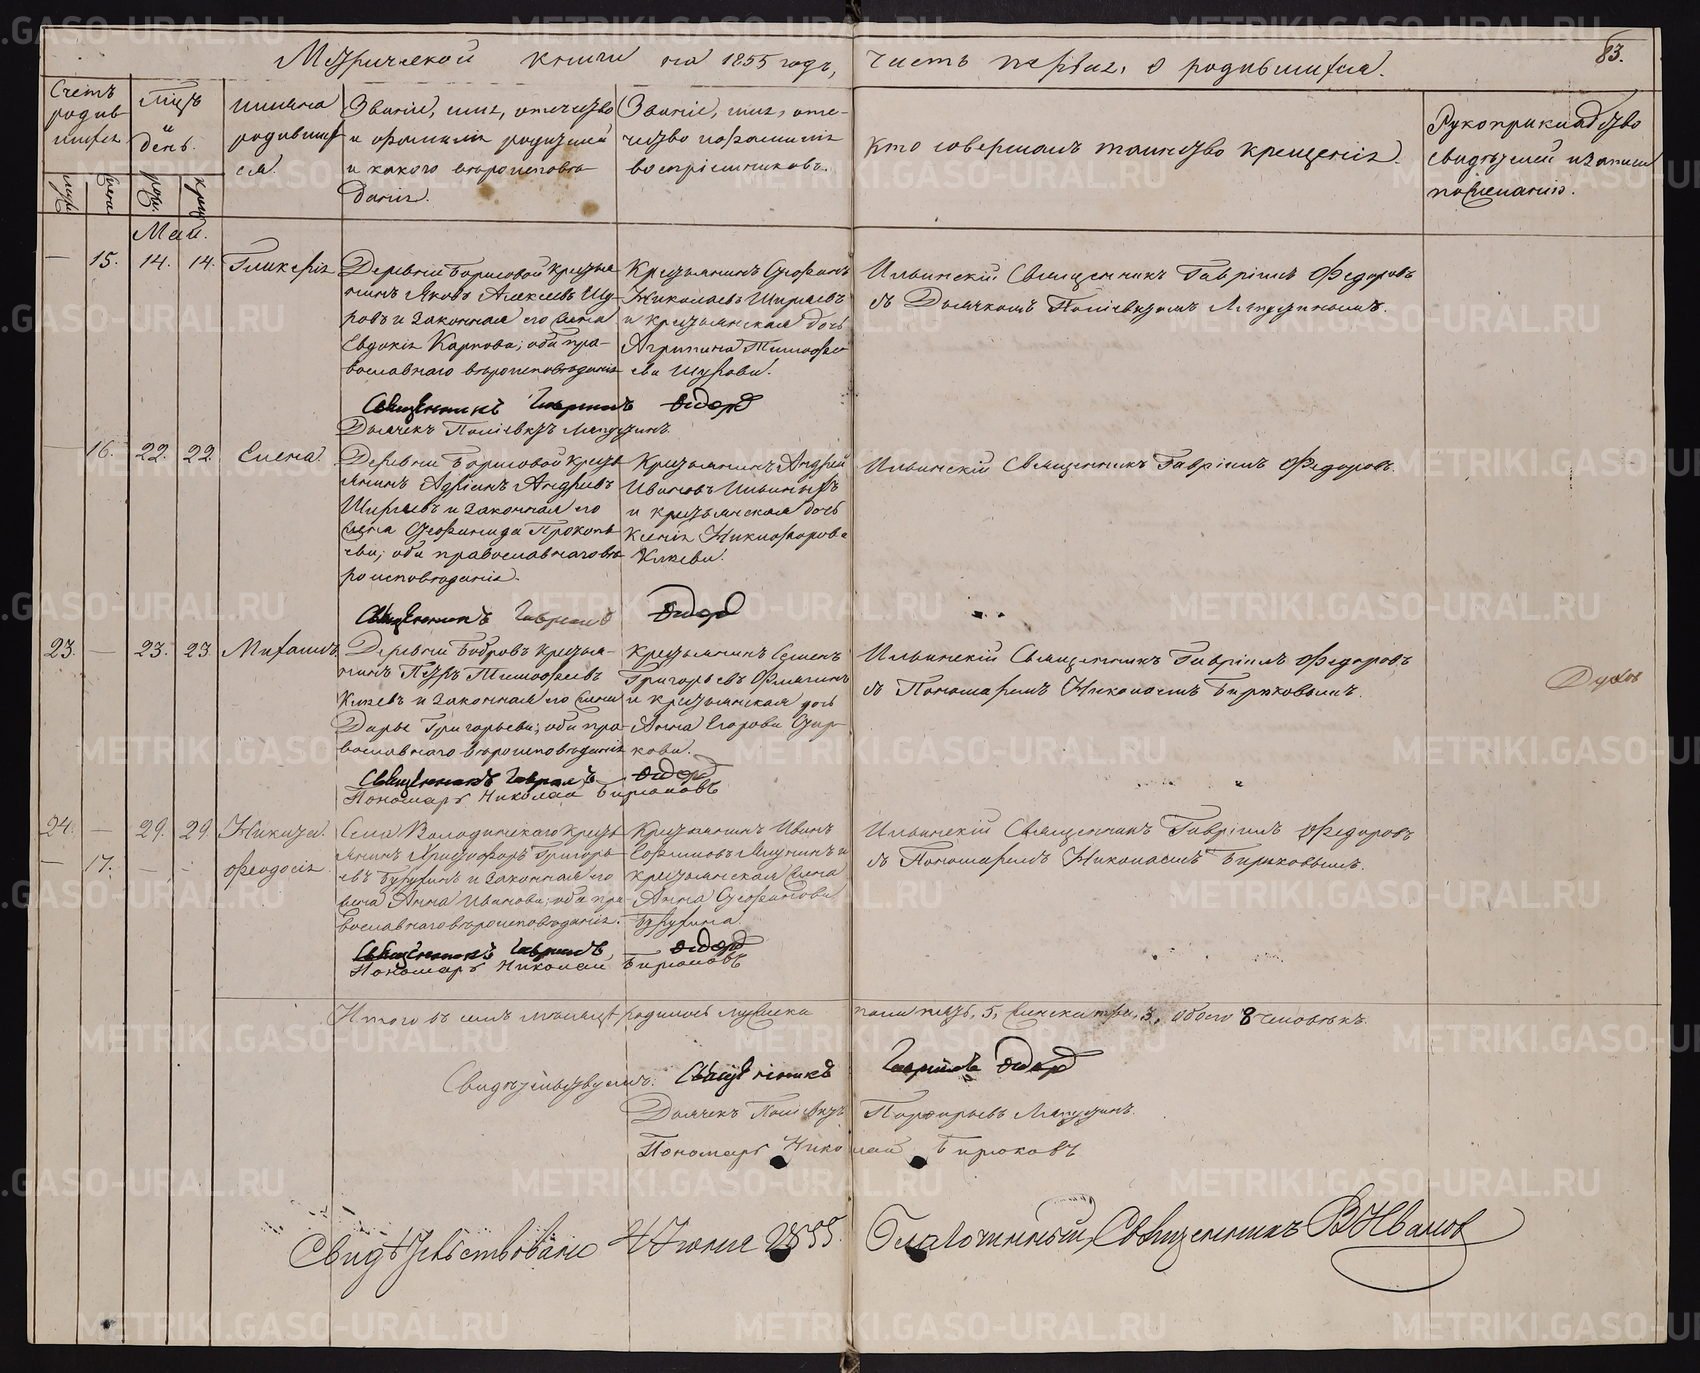 83.
Метрической книги на 1855 годъ, часть первая, о родившихся.
Счетъ родив-шихся.
муж.
жен.
Мѣц. и день.
рожд.
крещ.
Имена родивших-ся.
Званіе, имя, отечество и фамилія родителей и какого вѣроисповѣ-данія.
Званіе, имя, оте-чество и фамилія воспріемниковъ.
Кто совершалъ таинство крещенія.
Рукоприкладство свидѣтелей записи по желанію.
Май.
— 15. 14. 14. Гликерія
Деревни Борисовой крестья-
нинъ Яковъ Алексѣевъ Щу-
ровъ и законная его жена
Евдокія Карпова; оба пра-
вославнаго вѣроисповѣданія
Крестьянинъ
Николаевъ Ширяевъ
и крестьянская дочь
Агрипина Тимофѣе-
ва Щурова.
Ильинскій Священникъ Гавріилъ Федоровъ
съ Дьячкомъ Поліевктомъ Ляпустинымъ.
Священникъ Гавриилъ Федор
Дьячекъ Поліевктъ Ляпустинъ.
— 16. 22. 22 Елена.
Деревни Борисовой кресть-
янинъ Адріанъ Андреевъ
Ширяевъ и законная его
жена Прокопь-
ева; оба православнаго вѣ-
роисповѣданія.
Крестьянинъ Андрей
Ивановъ Ильиныхъ
и крестьянская дочь
Ксенія Никифорова
Князева.
Ильинскій Священникъ Гавріилъ Федоровъ.
Священникъ Гавриилъ Федор
23. — 23. 23 Михаилъ.
Деревни Бобровъ крестья-
нинъ Петръ Тимофеевъ
Князевъ и законная его жена
Дарья Григорьева; оба пра-
вославнаго вѣроисповѣданія
Крестьянинъ Семенъ
Григорьевъ
и крестьянская дочь
Анна Егорова Стар-
кова.
Ильинскій Священникъ Гавріилъ Федоровъ
съ Пономаремъ Николаемъ Бирюковымъ.
Священникъ Гавриилъ Федор
Пономарь Николай Бирюковъ
24. — 29. 29 Никита.
— 17. — — Феодосія.
Села Володинскаго кресть-
янинъ Христофоръ Григорь-
евъ и законная его
жена Анна Иванова; оба пра-
вославнаго вѣроисповѣданія.
Крестьянинъ Иванъ
и
крестьянская жена
Анна
Ильинскій Священникъ Гавріилъ Федоровъ
съ Пономаремъ Николаемъ Бирюковымъ.
Священникъ Гавриилъ Федор
Пономарь Николай Бирюковъ
Итого въ семъ мѣсяцѣ родилось мужеска пола пять, 5, женска три, 3, обоего 8 человѣкъ.
Свидѣтельствуемъ: Священникъ Гавриилъ Федор
Дьячекъ Поліевктъ Порфирьевъ Ляпустинъ.
Пономарь Николай Бирюковъ
Свидѣтельствовано 4 Іюня 1855. Благочинный, Священникъ В Ивановъ
METRIKI.GASO-URAL.RU